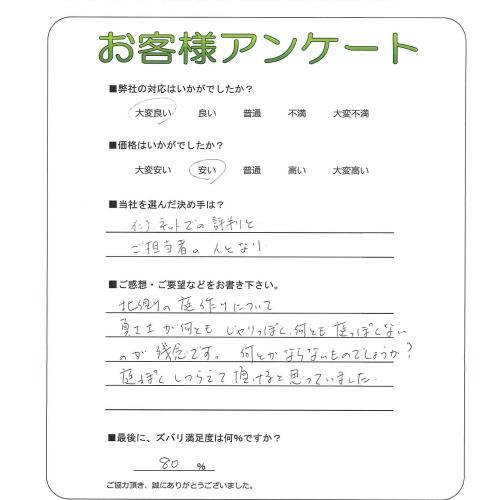 お客様アンケート
■弊社の対応はいかがでしたか?
大変良い 良い 普通 不満 大変不満
■価格はいかがでしたか?
大変安い 安い 普通 高い 大変高い
■当社を選んだ決め手は?
ネットでの評判と
ご担当者の人となり
■ご感想・ご要望などをお書き下さい。
北側の庭作りについて
真土が何とも じゃりっぽく、何とも庭っぽくない
のが残念です。 何とかならないものでしょうか?
庭ぽくしつらえて頂けると思っていました
■最後に、ズバリ満足度は何%ですか?
80 %
ご協力頂き、誠にありがとうございました。